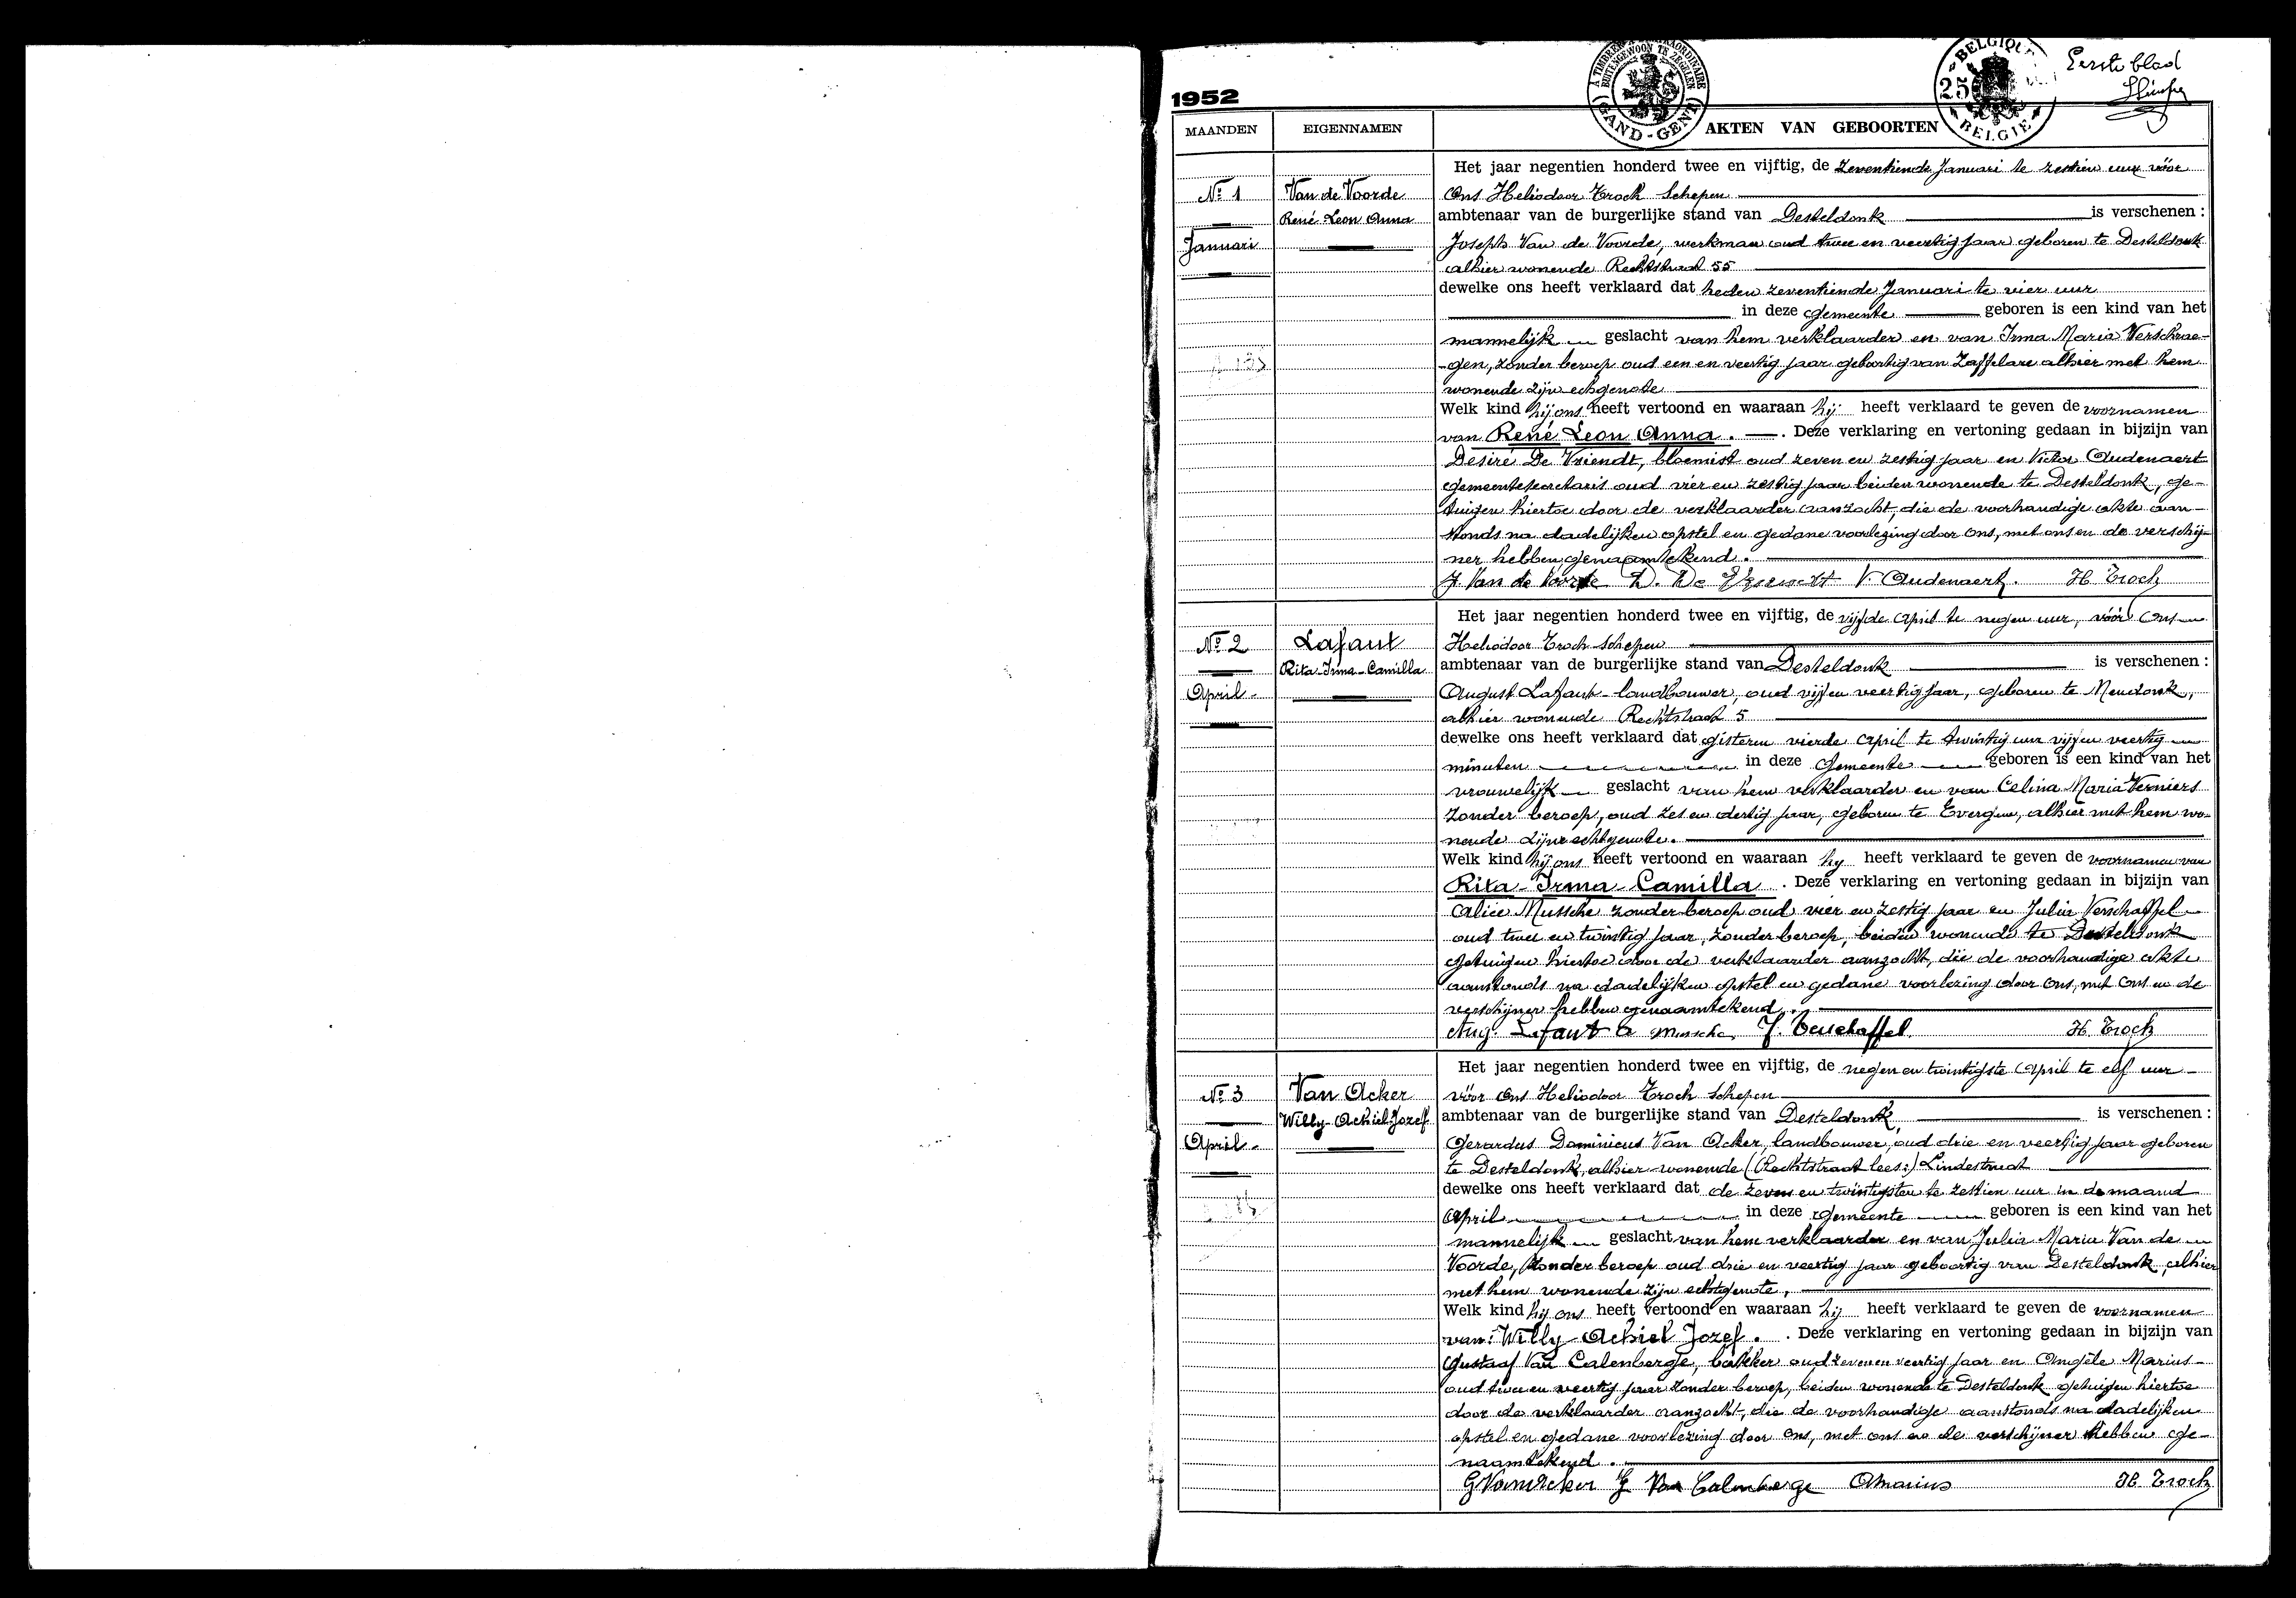 Eerste blad
A TIMBRER EXTRAORDINAIRE
BUITENGEWOON TE ZEGELEN
GAND - GENT
BELGIQUE
25
BELGIE
1952
MAANDEN
EIGENNAMEN
AKTEN VAN GEBOORTEN
No 1
Januari
Van de Voorde
René Leon Anna
Het jaar negentien honderd twee en vijftig, de zeventiende Januari te zestien uur vóór
Ons Heliodoor Troch Schepen
ambtenaar van de burgerlijke stand van Desteldonk is verschenen :
Joseph Van de Voorde, werkman oud twee en veertig jaar geboren te Desteldonk
alhier wonende Rechtstraat 55
dewelke ons heeft verklaard dat heden zeventiende Januari te vier uur
in deze gemeente geboren is een kind van het
mannelijk geslacht van hem verklaarder en van Irma Maria Verschrae-
-gen, zonder beroep oud een en veertig jaar geboortig van Zaffelare alhier met hem
wonende zijn echtgenote
Welk kind hij ons heeft vertoond en waaraan hij heeft verklaard te geven de voornamen
van René Leon Anna. . Deze verklaring en vertoning gedaan in bijzijn van
Desiré De Vriendt, bloemist oud zeven en zestig jaar en Victor Oudenaert
gemeentesecretaris oud vier en zestig jaar beiden wonende te Desteldonk, ge-
tuigen hiertoe door de verklaarder aanzocht, die de voorhandige akte aan-
stonds na dadelijken opstel en gedane voorlezing door ons, met ons en de verschij-
ner hebben genaamtekend.
J. Van de Voorde D. De Vriendt V. Oudenaert. H. Troch
No 2
April
Lafaut
Rita-Irma-Camilla
Het jaar negentien honderd twee en vijftig, de vijfde April te negen uur, vóór Ons
Heliodoor Troch Schepen
ambtenaar van de burgerlijke stand van Desteldonk is verschenen :
August Lafaut landbouwer, oud vijf en veertig jaar, geboren te Mendonk,
alhier wonende Rechtstraat 5
dewelke ons heeft verklaard dat gisteren vierde April te twintig uur vijf en veertig
minuten in deze Gemeente geboren is een kind van het
vrouwelijk geslacht van hem verklaarder en van Celina Maria Verniers
zonder beroep, oud zes en dertig jaar, geboren te Evergem, alhier met hem wo-
nende zijne echtgenote.
Welk kind hij ons heeft vertoond en waaraan hij heeft verklaard te geven de voornamen van
Rita-Irma-Camilla . Deze verklaring en vertoning gedaan in bijzijn van
Alice Mussche zonder beroep oud vier en zestig jaar en Julia Verschaffel
oud twee en twintig jaar, zonder beroep, beiden wonende te Desteldonk
getuigen hiertoe door de verklaarder aanzocht, die de voorhandige akte
aanstonds na dadelijken opstel en gedane voorlezing door Ons, met Ons en de
verschijner hebben genaamtekend.
Aug. Lafaut A Mussche J. Verschaffel H. Troch
No 3
April
Van Acker
Willy-Achiel-Jozef
Het jaar negentien honderd twee en vijftig, de negen en twintigste April te elf uur
vóór Ons Heliodoor Troch Schepen
ambtenaar van de burgerlijke stand van Desteldonk, is verschenen :
Gerardus Dominicus Van Acker, landbouwer, oud drie en veertig jaar geboren
te Desteldonk, alhier wonende (Rechtstraat lees:) Lindestraat
dewelke ons heeft verklaard dat de zeven en twintigsten te zestien uur in de maand
April in deze gemeente geboren is een kind van het
mannelijk geslacht van hem verklaarder en van Julia Maria Van de
Voorde, zonder beroep oud drie en veertig jaar geboortig van Desteldonk, alhier
met hem wonende zijn echtgenote,
Welk kind hij ons heeft vertoond en waaraan hij heeft verklaard te geven de voornamen
van: Willy Achiel Jozef. . Deze verklaring en vertoning gedaan in bijzijn van
Gustaaf Van Calenberge, bakker oud zeven en veertig jaar en Angèle Marius
oud twee en veertig jaar zonder beroep, beiden wonende te Desteldonk getuigen hiertoe
door de verklaarder aanzocht, die de voorhandige aanstonds na dadelijken
opstel en gedane voorlezing door ons, met ons en de verschijner hebben ge-
naamtekend.
G VanAcker G Van Calenberge A Marius H. Troch